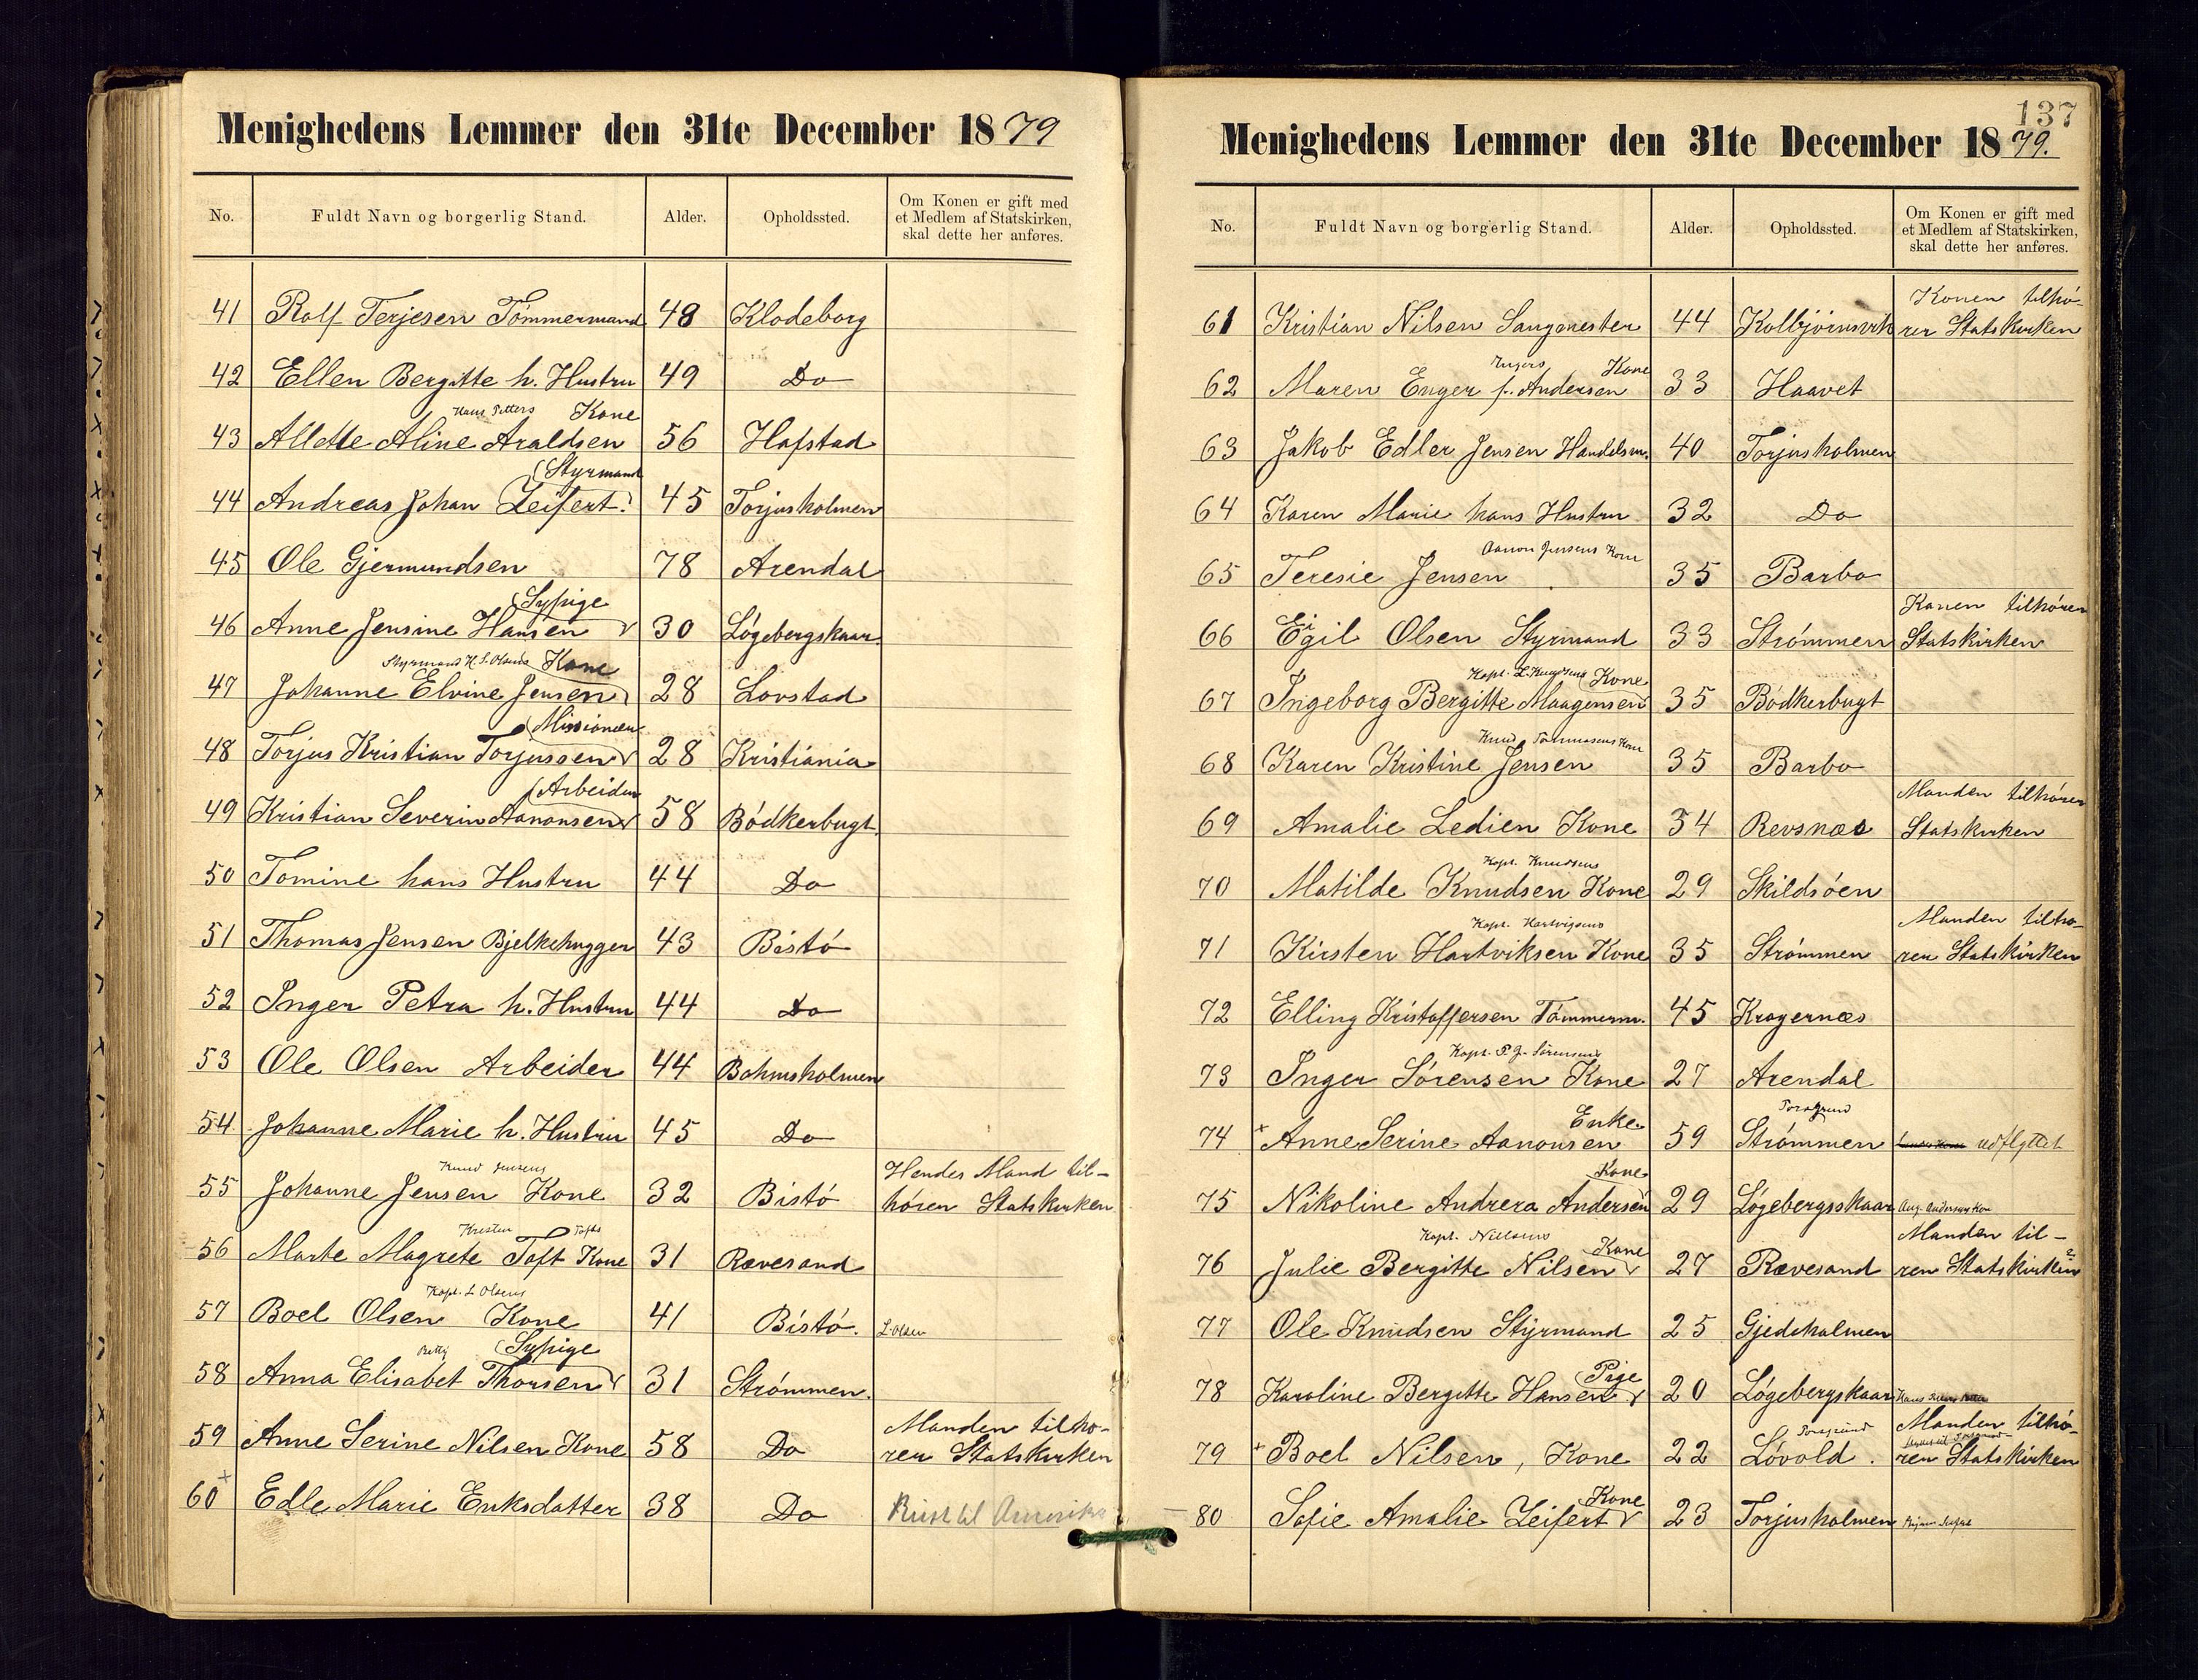 Menighedens Lemmer den 31te December 1879
No. Fuldt Navn og borgerlig Stand. Alder. Opholdssted. Om Konen er gift med
et Medlem af Statskirken,
skal dette her anføres.
41 Rolf Terjesen Tömmermand 48 Klodeborg
42 Ellen Bergitte h. Hustru 49 Do
Hans Petters Kone
43 Allette Aline Araldsen 56 Hafstad
Styrmand
44 Andreas Johan Leifert 45 Torjusholmen
45 Ole Gjermundsen 78 Arendal
Sypige
46 Anne Jensine Hansen 30 Lögebergskaar
Styrmand H. S. Olsens Kone
47 Johanne Elvine Jensen 28 Lovstad
Missionær
48 Torjus Kristian Torjussen 28 Kristiania
Arbeider
49 Kristian Severin Aanonsen 58 Bödkerbugt
50 Tomine hans Hustru 44 Do
51 Thomas Jensen Bjelkehugger 43 Bistö
52 Inger Petra h. Hustru 44 Do
53 Ole Olsen Arbeider 44 Bohmsholmen
54 Johanne Marie h. Hustru 45 Do
Knud Jensens Hendes Mand til-
55 Johanne Jensen Kone 32 Bistö hörer Statskirken
Kristen Tofts
56 Marte Magrete Toft Kone 31 Rævesand
Kapt. L Olsens
57 Boel Olsen Kone 41 Bistö. L. Olsen
Betty Sypige
58 Anna Elisabet Thorsen 31 Strömmen.
Manden tilhö-
59 Anne Serine Nilsen Kone 58 Do rer Statskirken
60 + Edle Marie Eriksdatter 38 Do Reist til Amerika
137
Menighedens Lemmer den 31te December 1879.
No. Fuldt Navn og borgerlig Stand. Alder. Opholdssted. Om Konen er gift med
et Medlem af Statskirken,
skal dette her anføres.
Konen tilhö-
61 Kristian Nilsen Sangmester 44 Kolbjörnsvik rer Statskirken
Kone
62 Maren Enger f. Andersen 33 Haavet
63 Jakob Edler Jensen Handelsm. 40 Torjusholmen
64 Karen Marie hans Hustru 32 Do
Aanon Jensens Kone
65 Teresie Jensen 35 Barbo
Konen tilhörer
66 Eigil Olsen Styrmand 33 Strömmen Statskirken
Kapt. L. Knudsens Kone
67 Ingeborg Bergitte Maagensen 35 Bödkerbugt
Knud Tommasens Kone
68 Karen Kristine Jensen 35 Barbo
Manden tilhörer
69 Amalie Ledien Kone 34 Revsnæs Statskirken
Kapt. Knudsens
70 Matilde Knudsen Kone 29 Skildsöen
Kapt. Hartvigsens Manden tilhö-
71 Kirsten Hartviksen Kone 35 Strömmen rer Statskirken
72 Elling Kristoffersen Tömmerm. 45 Kragernæs
Kapt. P. J. Sörensens
73 Inger Sörensen Kone 27 Arendal
Enke Porsgrund
74 + Anne Serine Aanonsen 59 Strömmen udflyttet
Kone
75 Nikoline Andrea Andersen 29 Lögebergsskaar Aug. Andersens Kone
Kapt. Nielsens Kone Manden til-
76 Julie Bergitte Nilsen 27 Rævesand ren Statskirken
77 Ole Knudsen Styrmand 25 Gjedeholmen
Pige
78 Karoline Bergitte Hansen 20 Lögebergskaar
Porsgrund Manden tilhö-
79 + Boel Nilsen, Kone 22 Lövold. ren Statskirken
Kone
80 Sofie Amalie Leifert 23 Torjusholmen